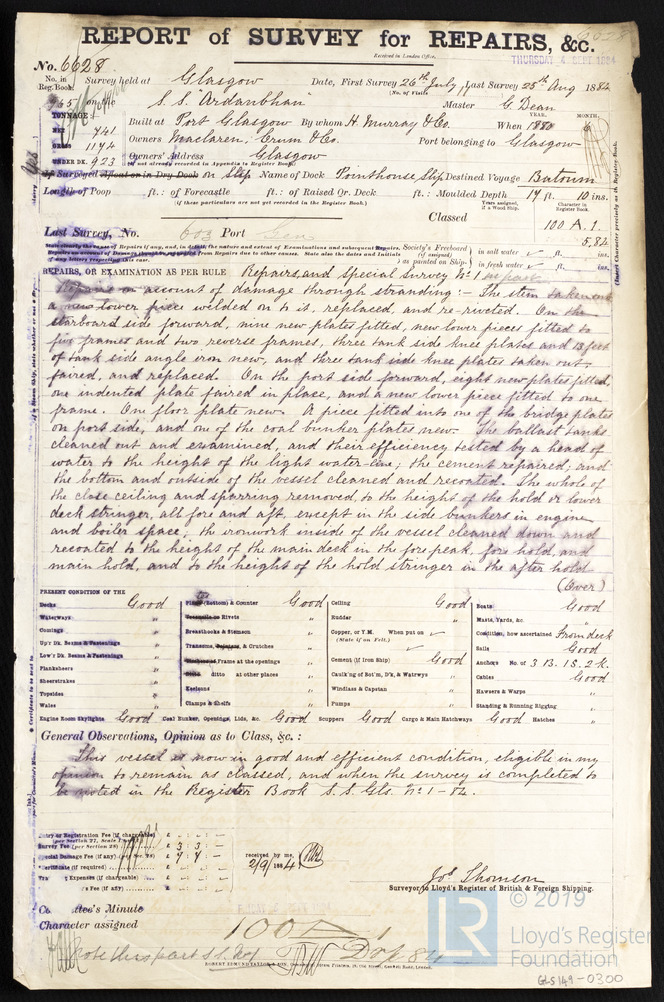 6628
REPORT of SURVEY for REPAIRS, &c.
Received in London Office,
THURSDAY 4 SEPT 1884
No. 6628
No. in Reg. Book. Survey held at Glasgow Date, First Survey 26th July Last Survey 25th Aug 1884
(No. of Visits)
965 on the S.S. "Ardanbhan" Master G. Dean
TONNAGE:— Built at Port Glasgow By whom H. Murray & Co. When 1880 6
YEAR. MONTH.
NET 741
GROSS 1174 Owners Maclaren, Crum & Co. Port belonging to Glasgow
UNDER DK. 923 Owners' Address Glasgow
(if not already recorded in Appendix to Register Book)
If Surveyed Afloat or in Dry Dock on Slip Name of Dock Pointhouse Slip Destined Voyage Batoum
Length of Poop ft.: of Forecastle ft.: of Raised Qr. Deck ft.: Moulded Depth 17 ft. 10 ins.
(if these particulars are not yet recorded in the Register Book.)
Years assigned, if a Wood Ship. Character in Register Book.
Classed 100 A. 1.
5,84
Last Survey, No. 603 Port
Society's Freeboard (if assigned) as painted on Ship: in salt water ft. ins.
in fresh water ft. ins.
REPAIRS, OR EXAMINATION AS PER RULE Repairs, and special survey No. 1 in part
Repairs on account of damage through stranding:— The stem taken out
a new lower piece welded on to it, replaced, and re-riveted. On the
starboard side forward, nine new plates fitted, new lower pieces fitted to
five frames and two reverse frames, three tank side knee plates and 13 feet
of tank side angle iron new, and three tank side knee plates taken out
faired, and replaced. On the port side forward, eight new plates fitted,
one indented plate faired in place, and a new lower piece fitted to one
frame. One floor plate new. A piece fitted into one of the bridge plates
on port side, and one of the coal bunker plates new. The ballast tanks
cleaned out and examined, and their efficiency tested by a head of
water to the height of the light water-line; the cement repaired; and
the bottom and outside of the vessel cleaned and recoated. The whole of
the close ceiling and sparring removed, to the height of the hold or lower
deck stringer, all fore and aft, except in the side bunkers in engine
and boiler space; the ironwork inside of the vessel cleaned down and
recoated to the height of the main deck in the fore peak, fore hold, and
main hold, and to the height of the hold stringer in the after hold
(Over)
PRESENT CONDITION OF THE
Decks Good
Waterways "
Comings "
Up'r Dk. Beams & Fastenings "
Low'r Dk. Beams & Fastenings "
Planksheers "
Sheerstrakes "
Topsides "
Wales "
Plank (Bottom) & Counter Good
Treenails or Rivets "
Breasthooks & Stemson "
Transoms, Pointers, & Crutches "
Frame at the openings "
ditto at other places "
Keelsons "
Clamps & Shelfs "
Ceiling Good
Rudder "
Copper, or Y.M. When put on
(State if on Felt.)
Cement (if Iron Ship) Good
Caulk'ng of Bot'm, D'k, & Watrwys "
Windlass & Capstan "
Pumps "
Boats Good
Masts, Yards, &c "
Condition, how ascertained From deck
Sails Good
Anchors No. of 3 B. 1 S. 2 K.
Cables Good
Hawsers & Warps "
Standing & Running Rigging "
Engine Room Skylights Good Coal Bunker, Openings, Lids, &c. Good Scuppers Good Cargo & Main Hatchways Good Hatches "
General Observations, Opinion as to Class, &c.:
This vessel is now in good and efficient condition, eligible in my
opinion to remain as classed, and when the survey is completed to
be noted in the Register Book S. S. Gls. No. 1 - 84.
Entry or Registration Fee (if chargeable) £ : :
(per Section 27, Scale 1)
Survey Fee (per Section 28) £ 3 : 3 : —
Special Damage Fee (if any) (per Sec. 28) £ 4 : 4 : —
Certificate (if required) £ : :
received by me, 2/9/1884
Jos. Thomson
Surveyor to Lloyd's Register of British & Foreign Shipping.
Committee's Minute
Character assigned 100 A 1
Note this part S.S. No. 1
© 2019
LR
Lloyd's Register
Foundation
GLS149-0300